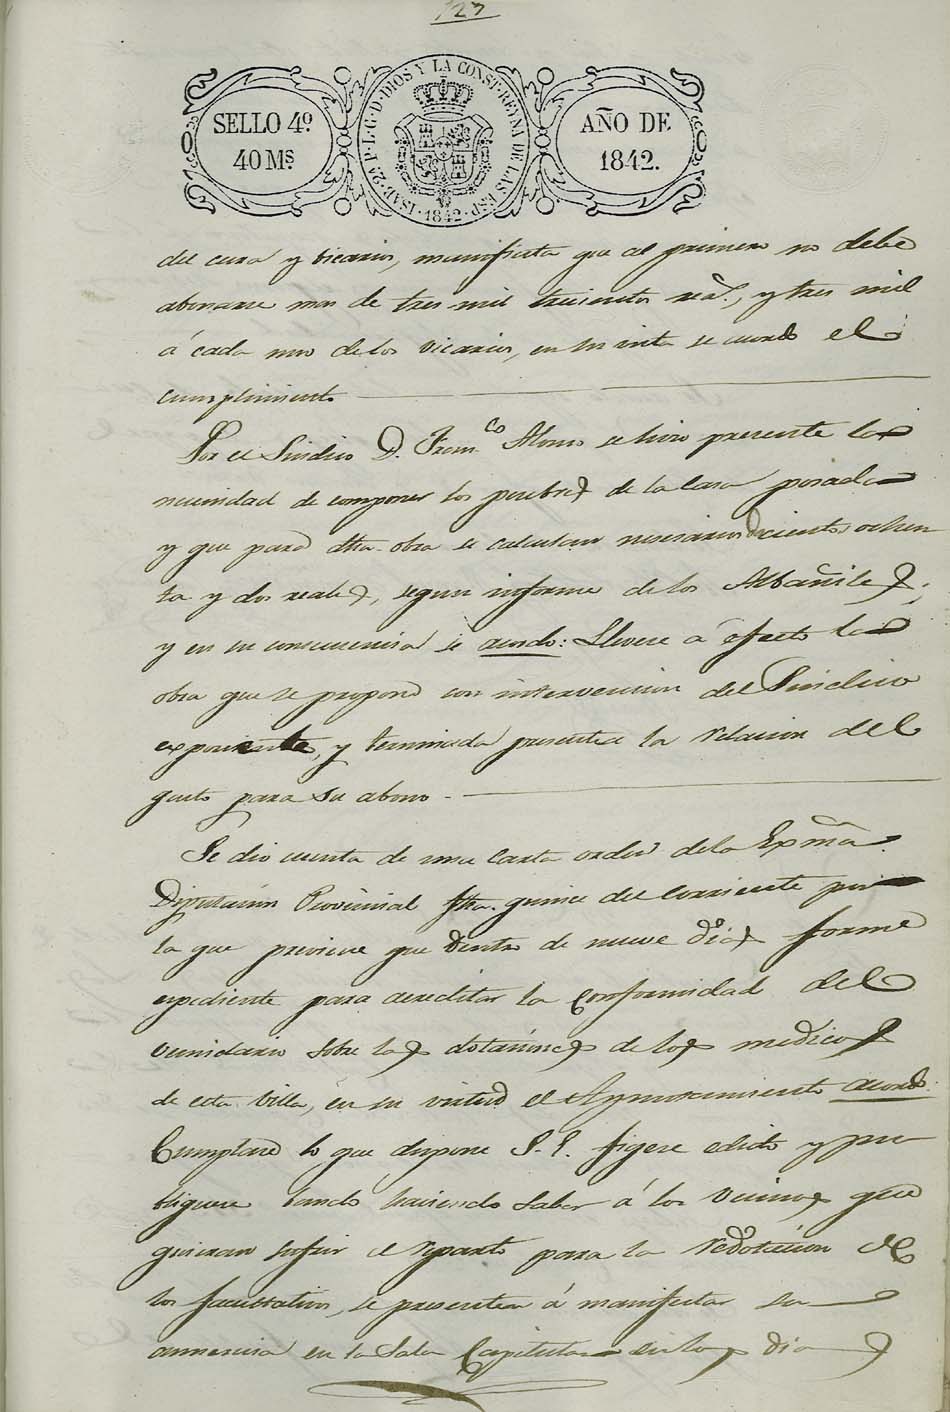 127
SELLO 4º
40 Mˢ
ISAB. 2ª P. L. G. D. DIOS Y LA CONST. REYNA DE LAS ESP.
1842
AÑO DE
1842.
del cura y vicarios, manifiesta que al primero no debe
abonarse mas de tres mil trescientos rea.ˢ, y tres mil
á cada uno de los vicarios, en su vista se acordó el
cumplimiento
Por el Sindico D. Fran.ᶜᵒ Alonso se hizo presente la
necesidad de componer los pesebres de la Casa posada
y que para dha. obra se calculan necesarios docientos ochen
ta y dos reales, segun informe de los Albañiles;
y en su consecuencia se acordó: Llevese á efecto la
obra que se propone con intervencion del Sindico
exponente, y terminada presente la relacion del
gasto para su abono
Se dio cuenta de una Carta orden de la Exma.
Diputacion Provincial fha. quince del corriente por
la que previene que dentro de nueve dias forme
expediente para acreditar la conformidad del
vecindario sobre las dotaciones de los medicos
de esta Villa, en su virtud el Ayuntamiento acordó:
Cumplase lo que dispone S. E. figese edicto y pu
bliquese bando haciendo saber á los Vecinos que
quieran sufrir el reparto para la redotacion de
los facultativos, se presenten á manifestar su
anuencia en la Sala Capitular en los dias